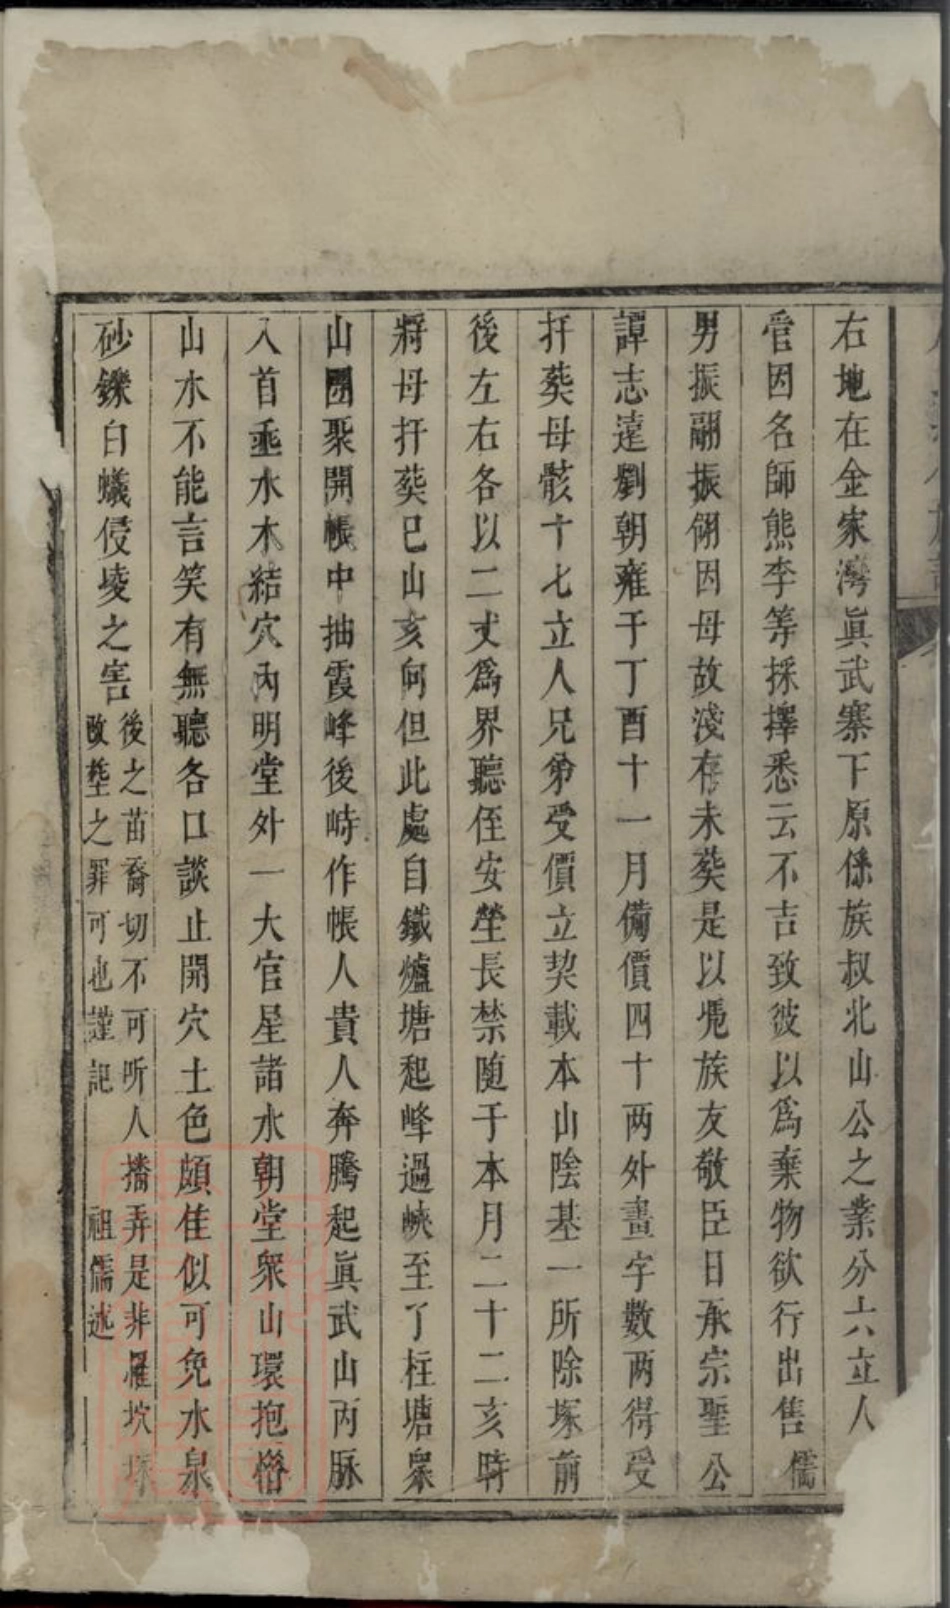 右地在金家灣眞武寨下原係族叔北山公之業分六立人
管因名師熊李等採擇悉云不吉致彼以爲棄物欲行出售儒
男振翮振翎因母故淺存未葵是以凂族友敬臣日承宗聖公
譚志達劉朝雍于丁酉十一月備價四十两外畫字數两得受
扦葵母骸十七立人兄弟受價立契載本山陰基一所除塚前
後左右各以二丈爲界聽侄安塋長禁随于本月二十二亥時
將母扦葵巳山亥向但此處自鐵爐塘起峰過峽至了柱塘衆
山團聚開帳中抽霞峰後峙作帳人貴人奔騰起眞武山丙脉
入首垂水木結穴內明堂外一大官星諸水朝堂衆山環抱
山水不能言笑有無聽各口談止開穴土色頗佳似可免水泉
砂鑠白蟻侵堎之害
後之苗裔切不可听人搐弄是非羅坎塚
敃塟之罪可也謹記 祖儒述